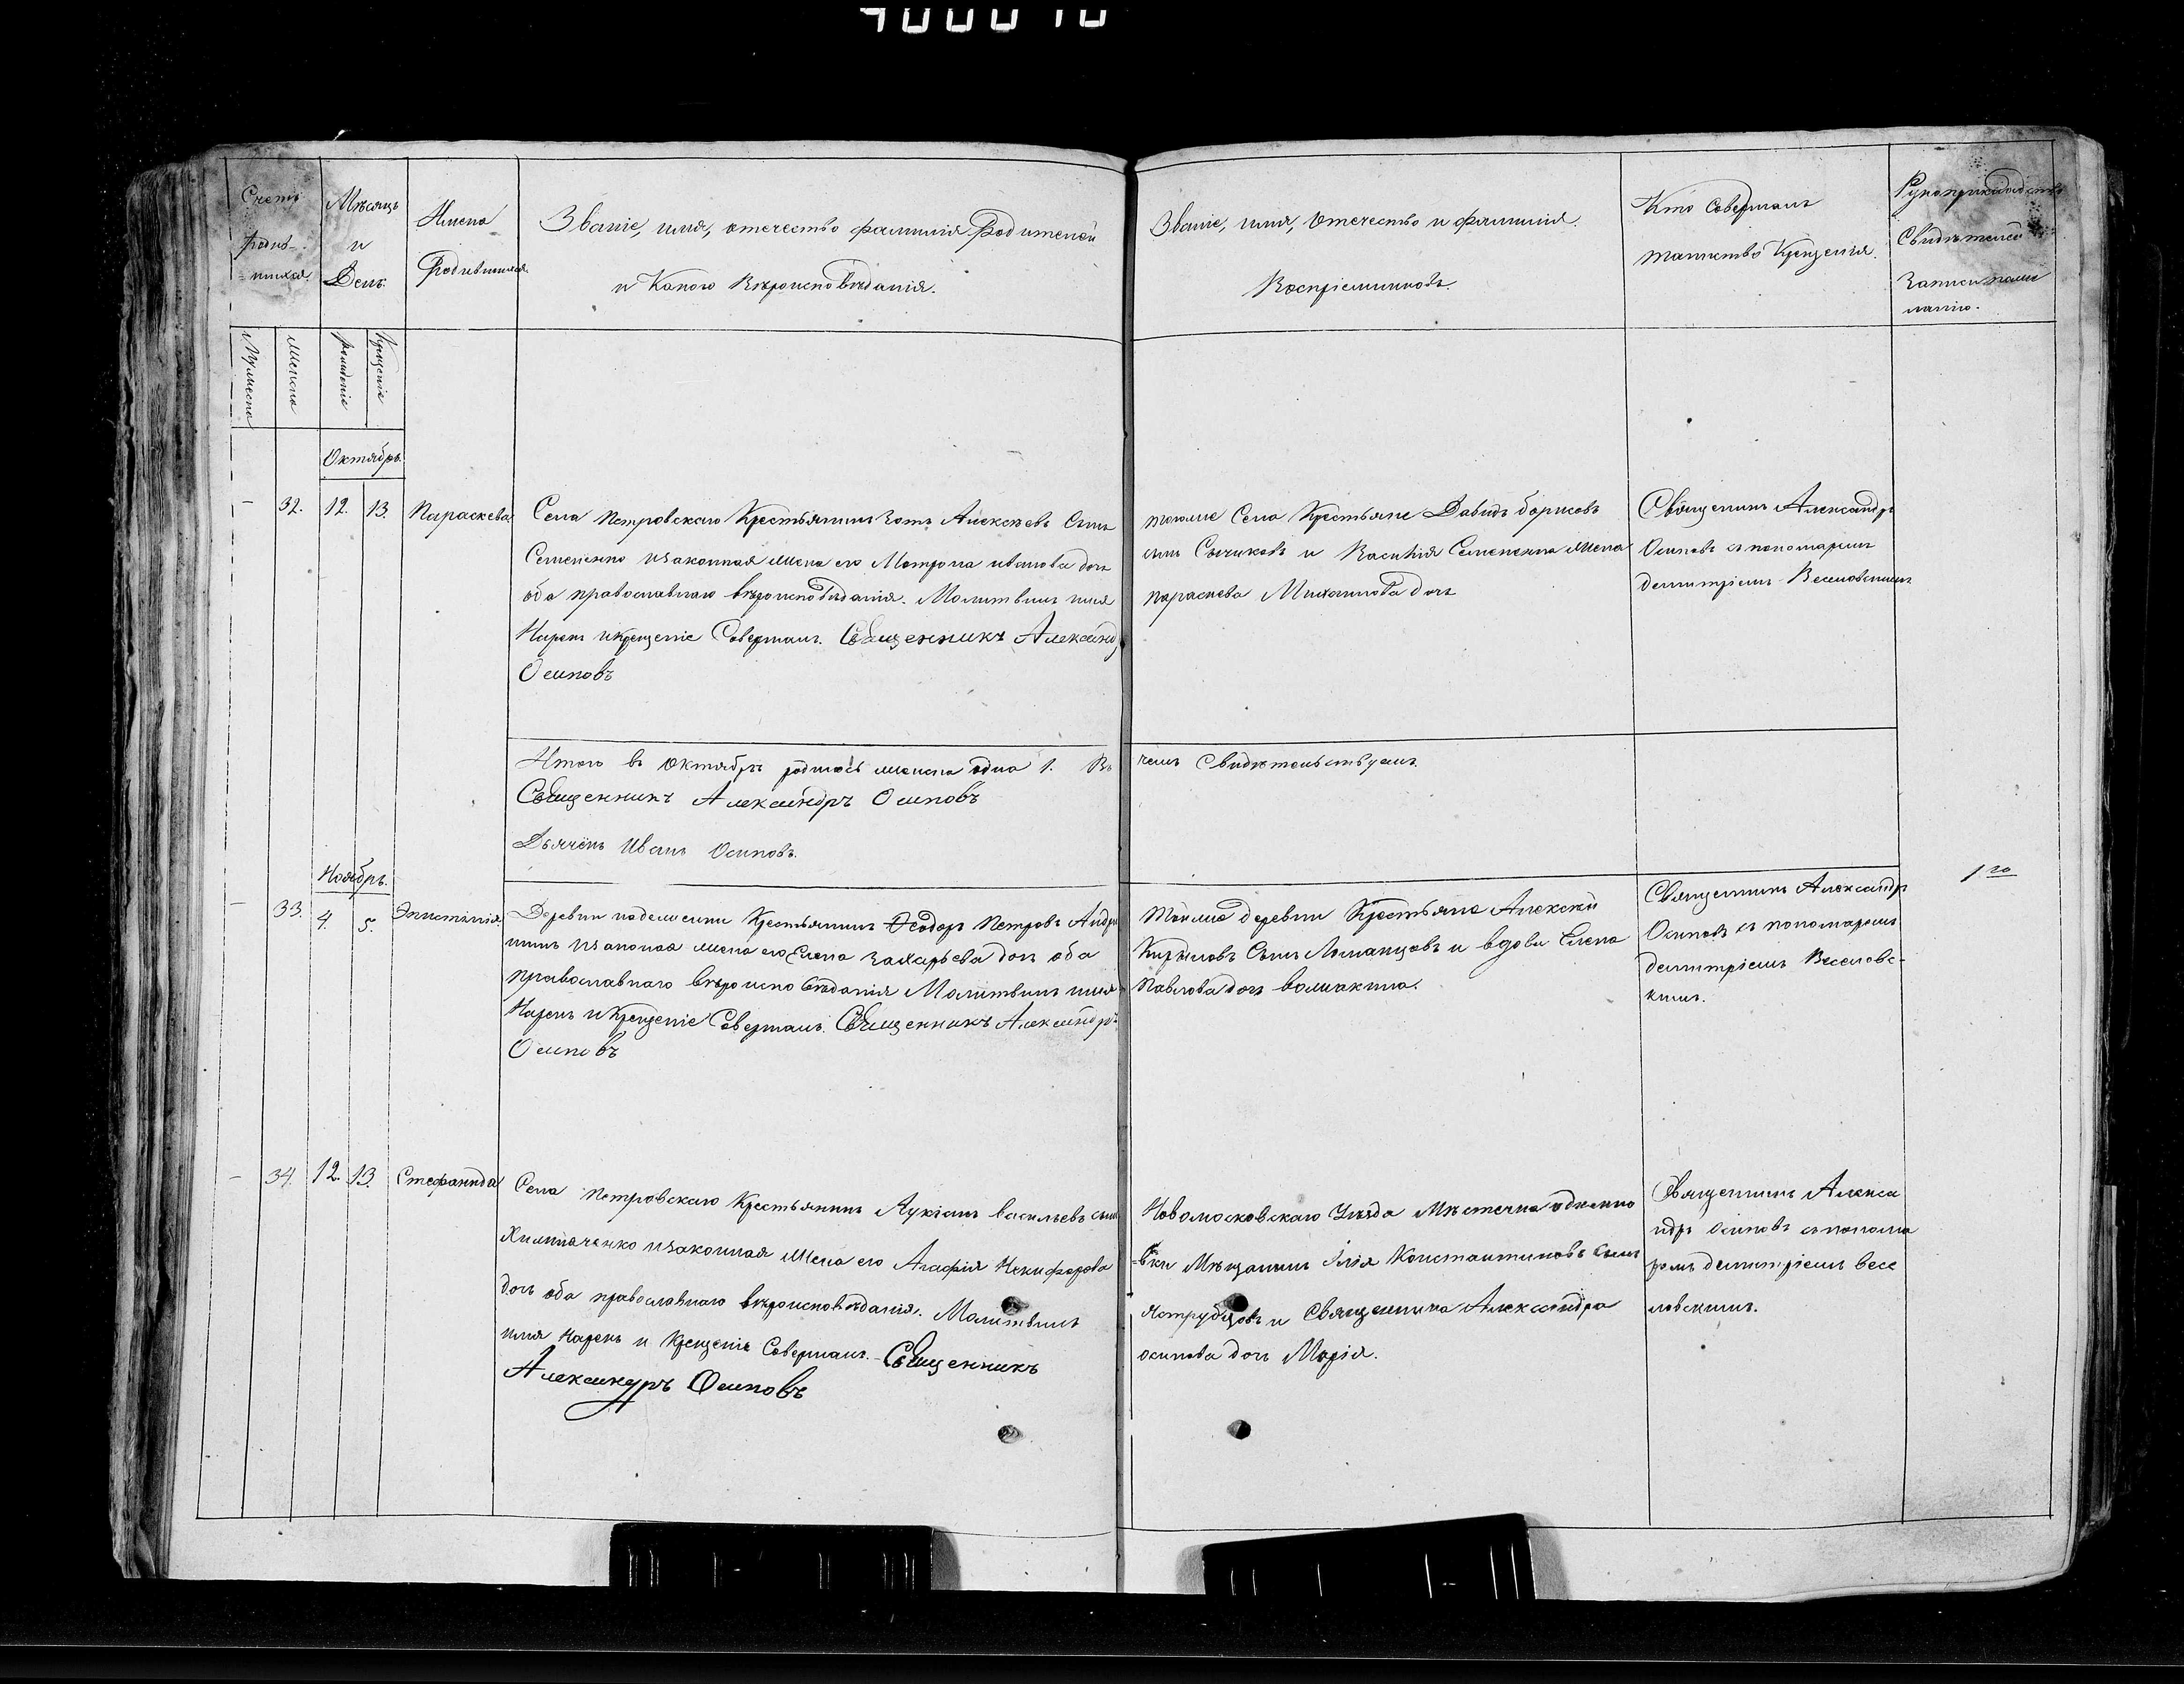 Счетъ
родив-
шихся.
Мѣсяцъ
и
День.
Имена
Родившихся.
Званіе, имя, отечество фамилія Родителей
и Какого Вѣроисповѣданія.
Званіе, имя, отечество и фамилія.
Воспріемниковъ.
Кто Совершалъ
таинство Крещенія.
Рукоприкладство
Свидѣтелей
Записи по желанію.
Мужеска
Женска
рожденіе
Крещеніе
Октябрь.
32. 12. 13. Параскева
Села Петровскаго Крестьянинъ Зотъ Алексѣевъ Сынъ
Семененко изаконная жена его Матрона иванова дочь
оба православнаго вѣроисповѣданія. Молитвилъ имя
Нарекъ икрещеніе Совершалъ. Священникъ Александръ
Осиповъ
тогоже Села Крестьяне Давидъ борисовъ
сынъ Сычиковъ и Василія Семененка жена
параскева Михаилова дочь
Священникъ Александръ
Осиповъ съ пономаремъ
димитріемъ Веселовскимъ
Итого въ октябрѣ родилось женска одна 1. Въ чемъ Свидѣтельствуемъ.
Священникъ Александръ Осиповъ
Дьячекъ Иванъ Осиповъ.
Ноябрь.
33. 4. 5. Эпистимія.
Деревни Крестьянинъ Ѳеодоръ Петровъ
изаконая жена его Елена Захарьева дочь оба
православнаго вѣроисповѣданія Молитвилъ имя
Нарекъ и Крещеніе Совершалъ. Священникъ Александръ
Осиповъ
Тойже деревни Крестьяне Алексѣй
Кириловъ Сынъ и вдова Елена
Павлова дочь
Священникъ Александръ
Осиповъ съ пономаремъ
димитріемъ Веселовс-
кимъ.
1 20
34. 12. 13. Стефанида
Села Петровскаго Крестьянинъ Лукіанъ васильевъ сынъ
изаконная Жена его Агафія Никифорова
дочь оба православнаго вѣроисповѣданія. Молитвилъ
имя Нарекъ и Крещеніе Совершалъ. Священникъ
Александръ Осиповъ
Новомосковскаго Уѣзда Мѣстечка
Мѣщанинъ Илія Константиновъ Сынъ
и Священника Александра
осипова дочь Марія.
Священникъ Алекса
ндръ Осиповъ съ понома
ремъ димитріемъ весе
ловскимъ.